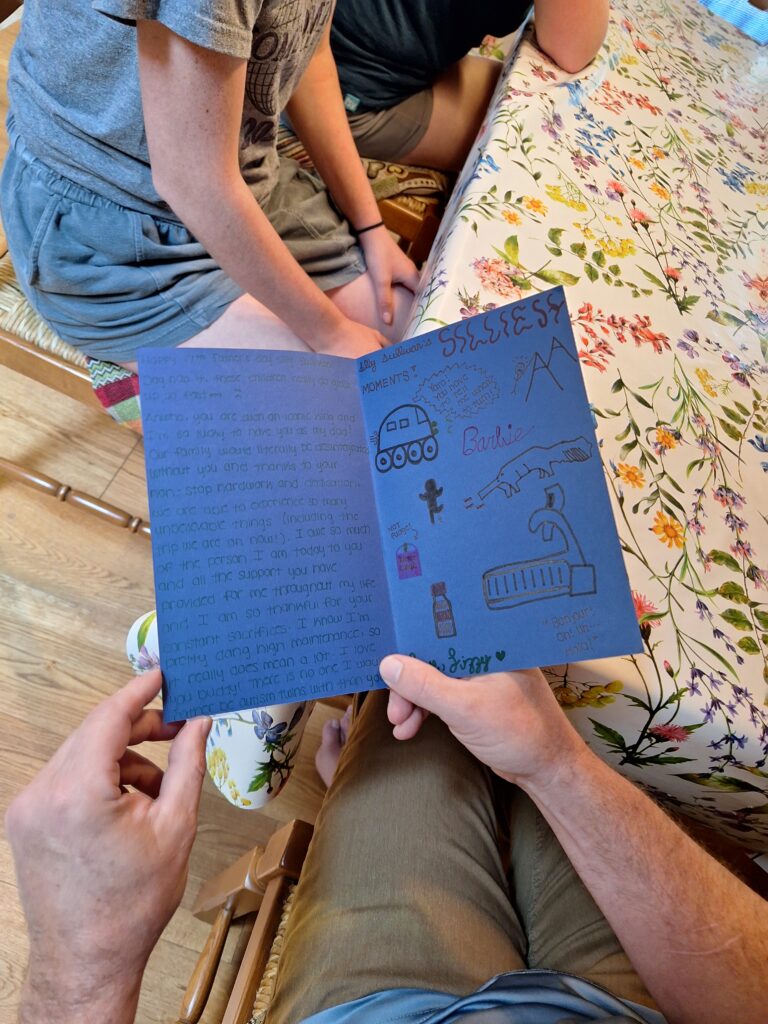 Happy 17th Father's Day silly
Dag nab it, these children really do grow
up so fast
you are such an iconic king and
I'm so lucky to have you as my dad!
Our family would literally be disintegrated
without you and thanks to your
non-stop hardwork and dedication
we are able to experience so many
unbelievable things (including the
trip we are on now!). I owe so much
of the person I am today to you
and all the support you have
provided for me throughout my life
and I am so thankful for your
constant sacrifices. I know I'm
pretty dang high maintenance, so
it really does mean a lot. I love
you buddy! There is no one I would
rather be autism twins with than you
Silly Sullivan's SILLIEST
MOMENTS!
you have
the wrong
Barbie
"Bonjour!
oh uh...
Hola!"
Lizzy ♥